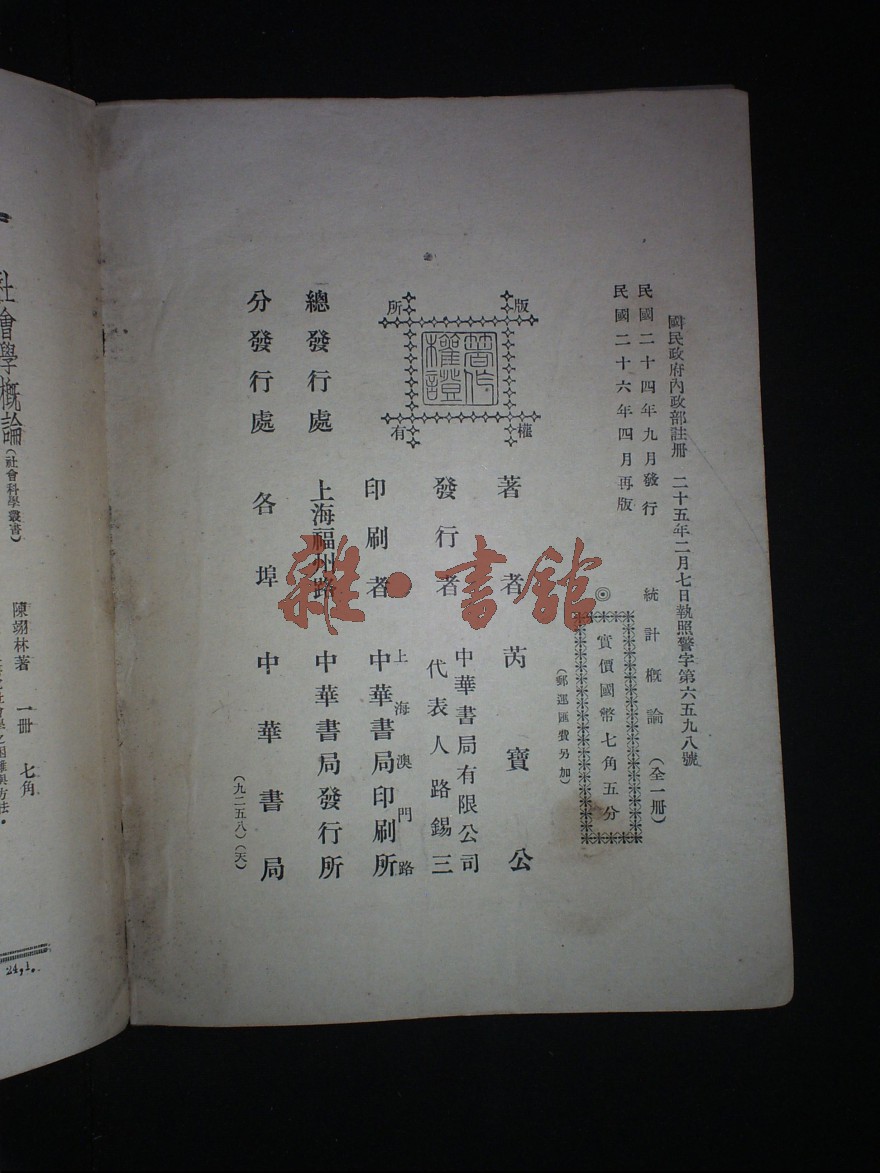 國民政府內政部註冊 二十五年二月七日執照警字第六五九八號
民國二十四年九月發行
民國二十六年四月再版
統計概論(全一冊)
◎實價國幣七角五分
(郵運匯費另加)
版權所有
著作權證
著者 芮寶公
發行者 中華書局有限公司
代表人路錫三
印刷者 上海澳門路
中華書局印刷所
總發行處 上海福州路 中華書局發行所
分發行處 各埠 中華書局
(九二五八)(天)
雜·書館
社會學概論(社會科學叢書)
陳翊林著 一冊 七角